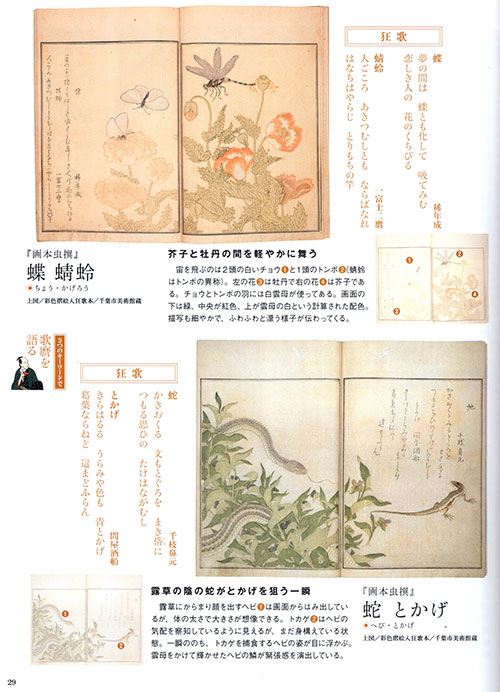 狂歌
蝶
夢の間は 蝶とも化して 吸てみむ
恋しき人の 花のくちびる
稀年成
蜻蛉
人ごころ あきつむしとも ならばなれ
はなちはやらじ とりもちの竿
一富士二鷹
『画本虫撰』
蝶 蜻蛉
ちょう・かげろう
上図/彩色摺絵入狂歌本/千葉市美術館蔵
芥子と牡丹の間を軽やかに舞う
宙を飛ぶのは2頭の白いチョウ1と1頭のトンボ2(蜻蛉
はトンボの異称)。左の花3は牡丹で右の花4は芥子であ
る。チョウとトンボの羽には白雲母が使ってある。画面の
下は緑、中央が紅色、上が雲母の白という計算された配色。
描写も細やかで、ふわふわと漂う様子が伝わってくる。
1
2
3
4
3つのキーワードで
歌麿を
語る
狂歌
蛇
かきおくる 文もとぐろを まき倍に
つもる思ひの たけはながむし
千枝鼻元
とかげ
きらはるる うらみや色も 青とかげ
葛葉ならねど 這まどふらん
問屋酒船
露草の陰の蛇がとかげを狙う一瞬
露草にからまり顔を出すヘビ1は画面からはみ出してい
るが、体の太さで大きさが想像できる。トカゲ2はヘビの
気配を察知しているように見えるが、まだ身構えている状
態。一瞬ののち、トカゲを捕食するヘビの姿が目に浮かぶ。
雲母をかけて輝かせたヘビの鱗が緊張感を演出している。
1
2
『画本虫撰』
蛇 とかげ
へび・とかげ
上図/彩色摺絵入狂歌本/千葉市美術館蔵
29